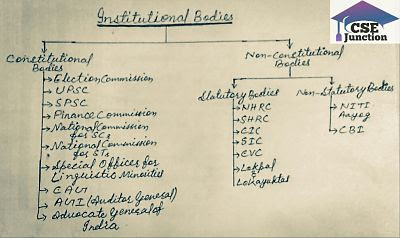 Institutional Bodies
CSE
Junction
Constitutional
Bodies
Election Commission
UPSC
SPSC
Finance Commission
National Commission
for SCs
National Commission
for STs
Special Offices for
Linguistic Minorities
CAG
AGI (Auditor General)
Advocate General of
India
Non-Constitutional
Bodies
Statutory Bodies
NHRC
SHRC
CIC
SIC
CVC
Lokpal
&
Lokayuktas
Non-Statutory Bodies
NITI
Aayog
CBI